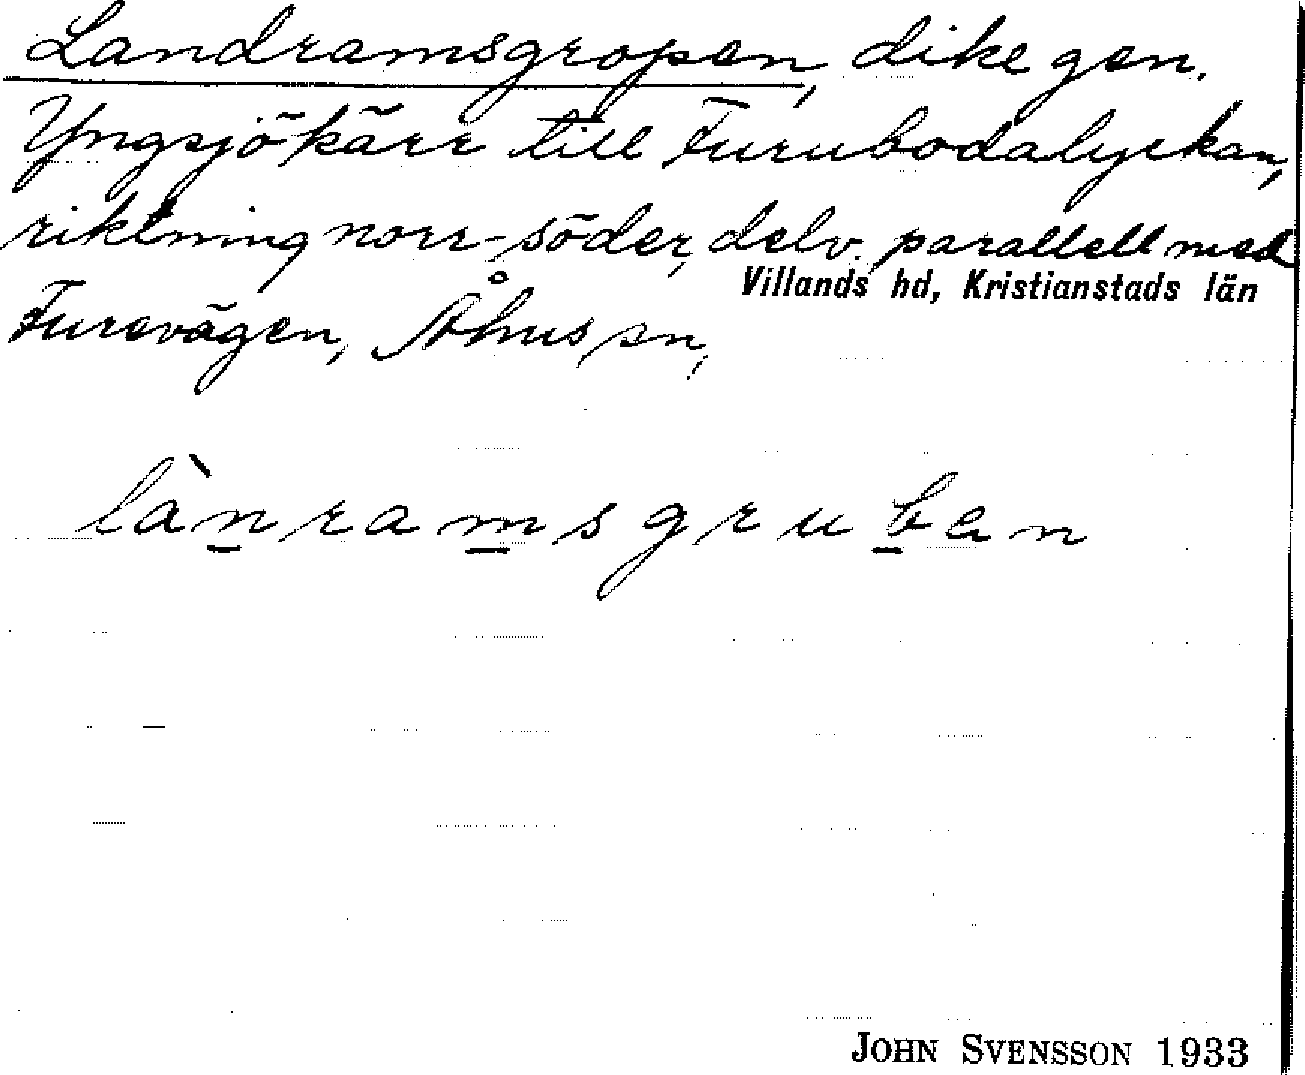 Landramsgropen, dike gen.
Yngsjökärr till Furubodalyckan,
riktning norr-söder, delv. parallell med
Villands hd, Kristianstads län
Furevägen, Åhus sn,
lànramsgruben
JOHN SVENSSON 1933